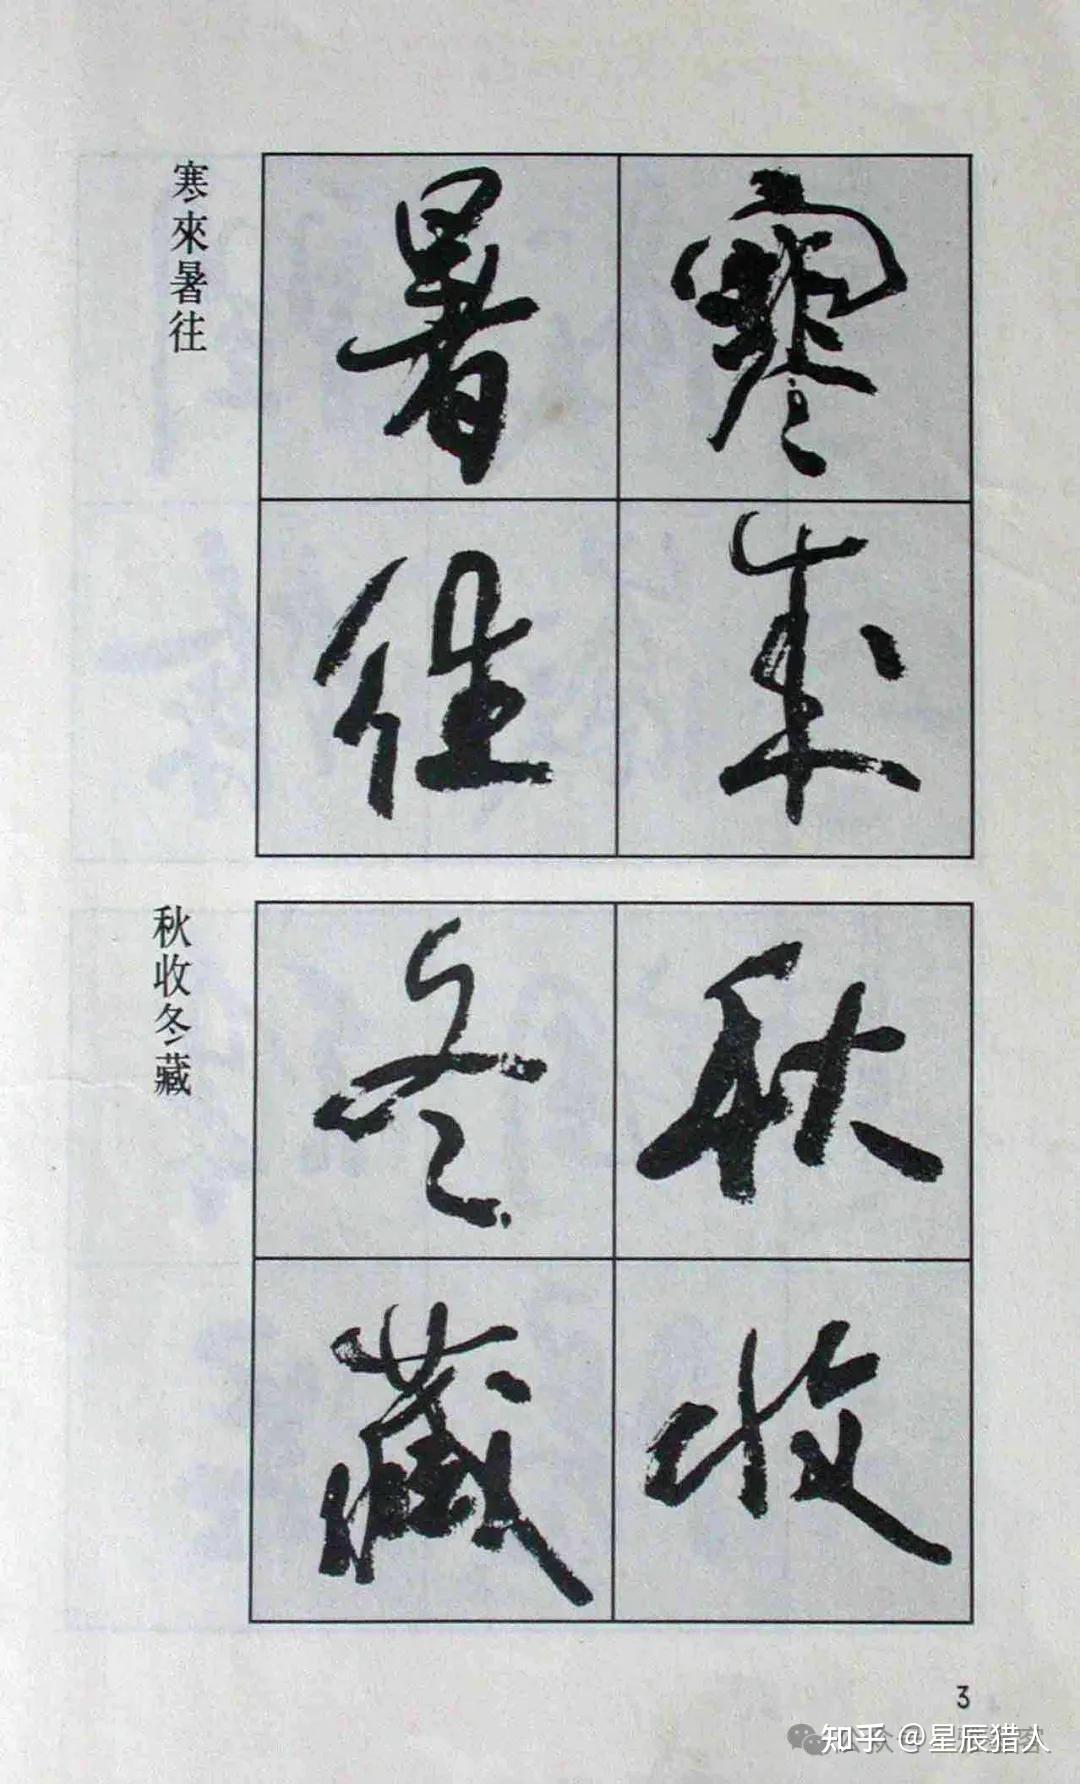 寒來
暑往
寒來暑往
秋收
冬藏
秋收冬藏
3
知乎 @星辰猎人